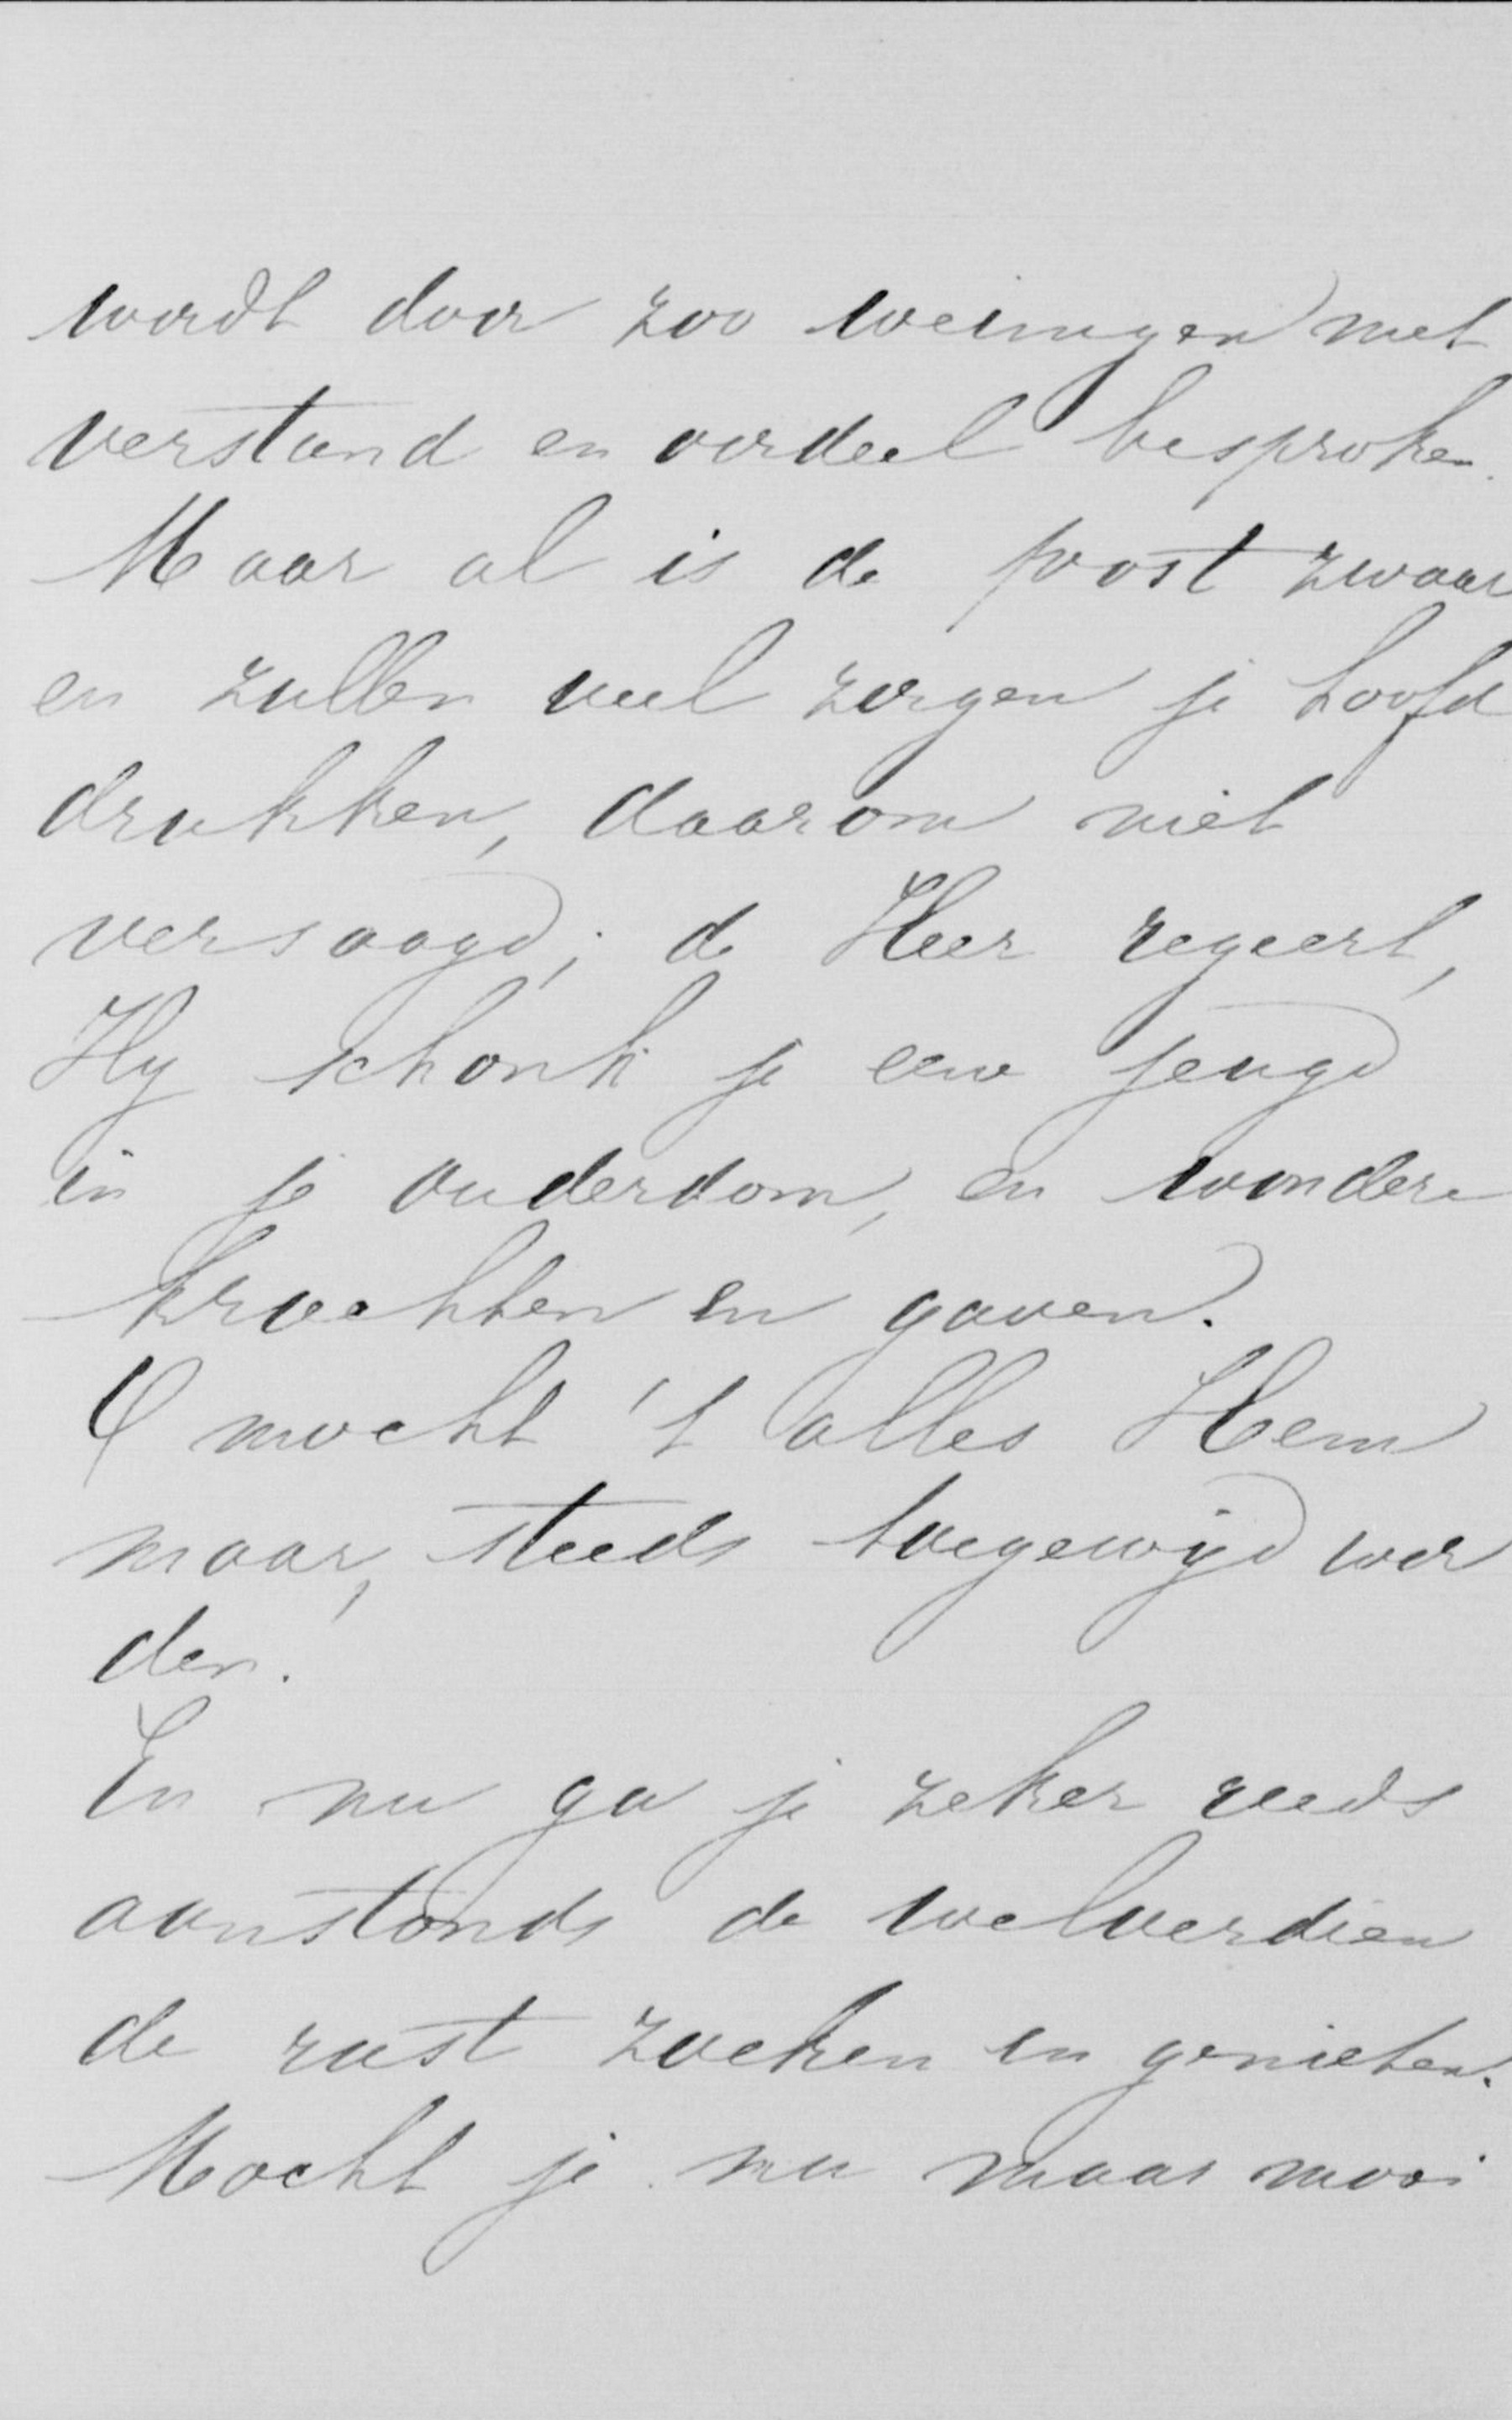 wordt door zoo weinigen met
verstand en oordeel besproken.
Maar al is de post zwaar
en zullen veel zorgen je hoofd
drukken, daarom niet
versaagd; de Heer regeert,
Hy schonk je eene jeugd
in je ouderdom, en wondere
krachten en gaven.
O mocht 't alles Hem
maar, steeds toegewijd wor
den.
En nu ga je zeker reeds
aanstonds de welverdien
de rust zoeken en genieten.
Mocht je nu maar mooi